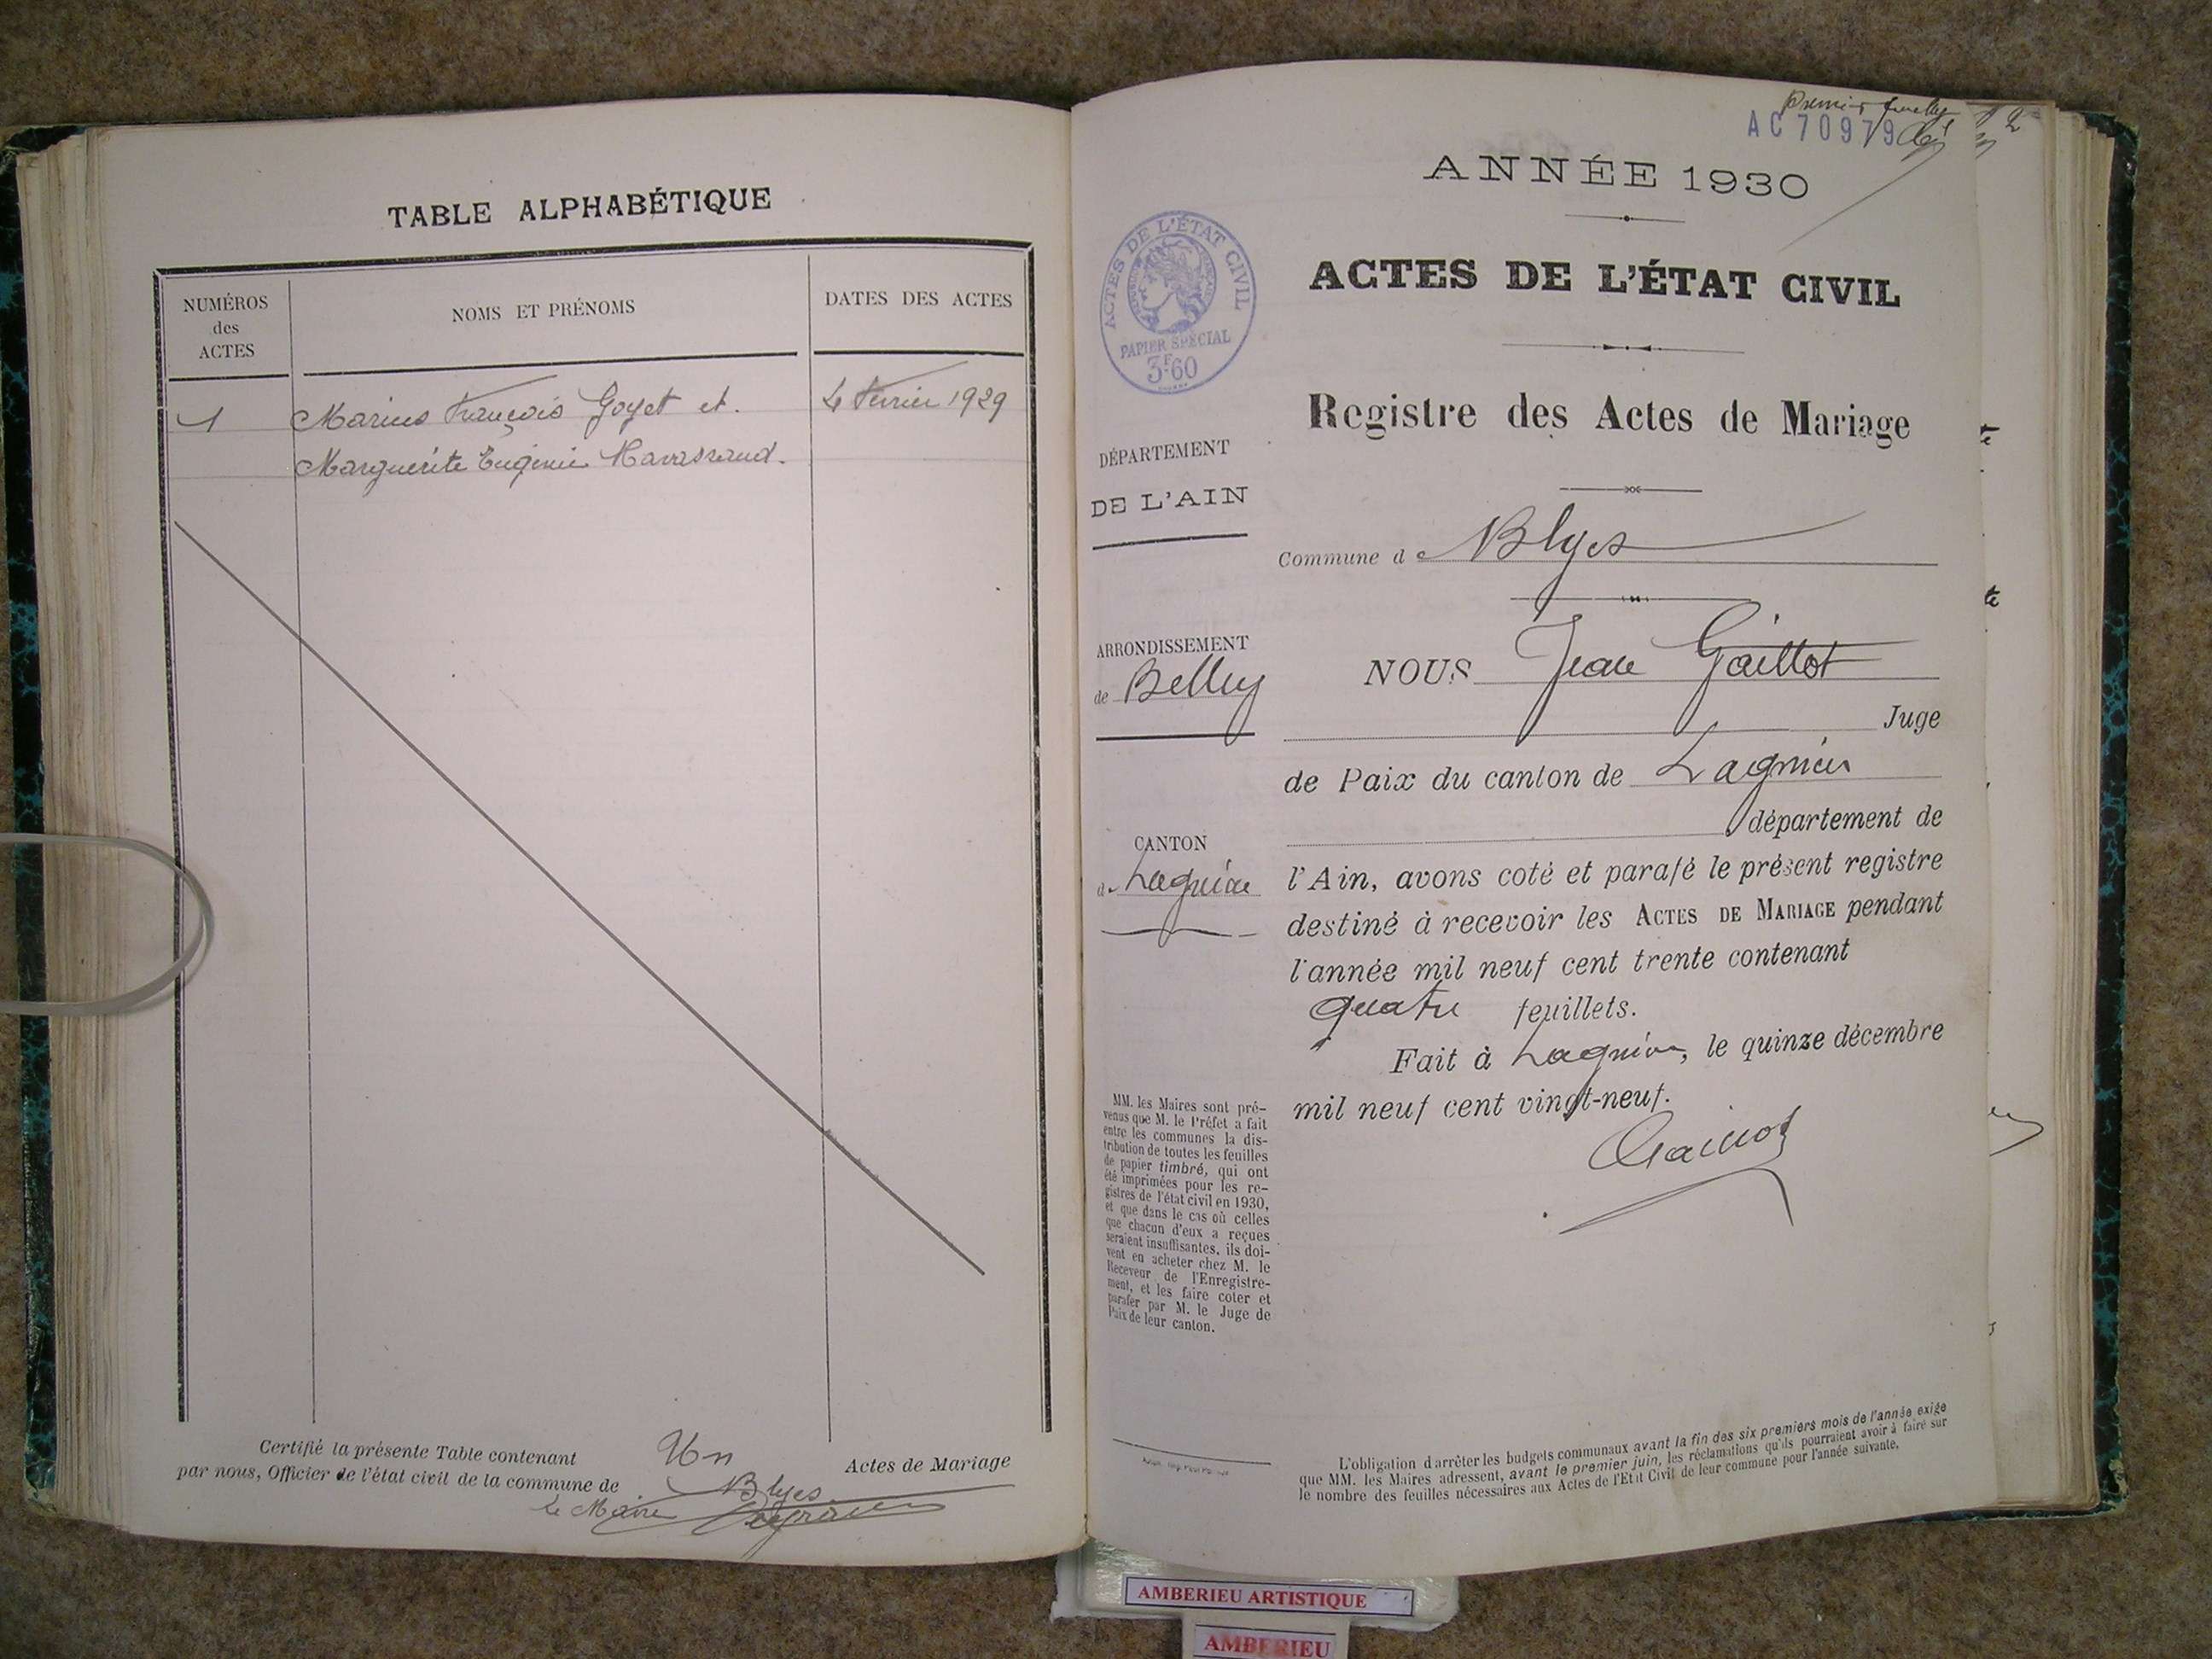 TABLE ALPHABÉTIQUE
NUMÉROS
des
ACTES
NOMS ET PRÉNOMS
DATES DES ACTES
1 Marius François Goyet et 4 Février 1929
Marguerite Eugénie
Certifié la présente Table contenant Un Actes de Mariage
par nous, Officier de l'état civil de la commune de Blyes
Le Maire
Premier
AC 70979
ANNÉE 1930
ACTES DE L'ÉTAT CIVIL
PAPIER SPÉCIAL
3F60
ACTES DE L'ÉTAT CIVIL
Registre des Actes de Mariage
DÉPARTEMENT
DE L'AIN
Commune de Blyes
ARRONDISSEMENT
de Belley
NOUS Jean Gaillot
Juge
de Paix du canton de Lagnieu
département de
CANTON
de Lagnieu
l'Ain, avons coté et parafé le présent registre
destiné à recevoir les ACTES DE MARIAGE pendant
l'année mil neuf cent trente contenant
quatre feuillets.
Fait à Lagnieu, le quinze décembre
mil neuf cent vingt-neuf.
Gaillot
MM. les Maires sont pré-
venus que M. le Préfet a fait
entre les communes la dis-
tribution de toutes les feuilles
de papier timbré, qui ont
été imprimées pour les re-
gistres de l'état civil en 1930,
et que dans le cas où celles
que chacun d'eux a reçues
seraient insuffisantes, ils doi-
vent en acheter chez M. le
Receveur de l'Enregistre-
ment, et les faire coter et
parafer par M. le Juge de
Paix de leur canton.
L'obligation d'arrêter les budgets communaux avant la fin des six premiers mois de l'année exige
que MM. les Maires adressent, avant le premier juin, les réclamations qu'ils pourraient avoir à faire sur
le nombre des feuilles nécessaires aux Actes de l'Etat Civil de leur commune pour l'année suivante.
AMBERIEU ARTISTIQUE
AMBERIEU